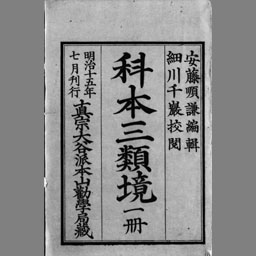 安藤順謙編輯
細川千巖校閲
科本三類境 一册
明治十五年
七月刊行
真宗大谷派本山勸學局藏